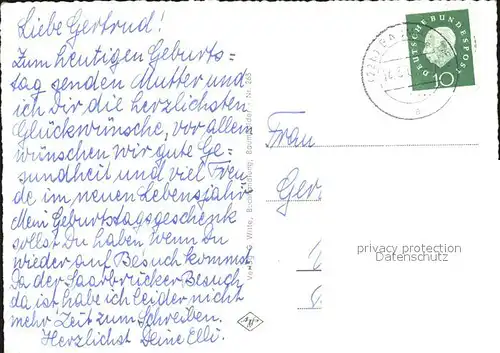 Liebe Gertrud!
Zum heutigen Geburts=
tag senden Mutter und
ich Dir die herzlichsten
Glückwünsche, vor allem
wünschen wir gute Ge=
sundheit und viel Freu
de im neuen Lebensjahr
Mein Geburtstagsgeschenk
sollst Du haben wenn Du
wieder auf Besuch kommst
Da der Saarbrücker Besuch
da ist habe ich leider nicht
mehr Zeit zum Schreiben.
Herzlichst Deine Elli.
DEUTSCHE BUNDESPOST
10
Frau
Ger
privacy protection
Datenschutz